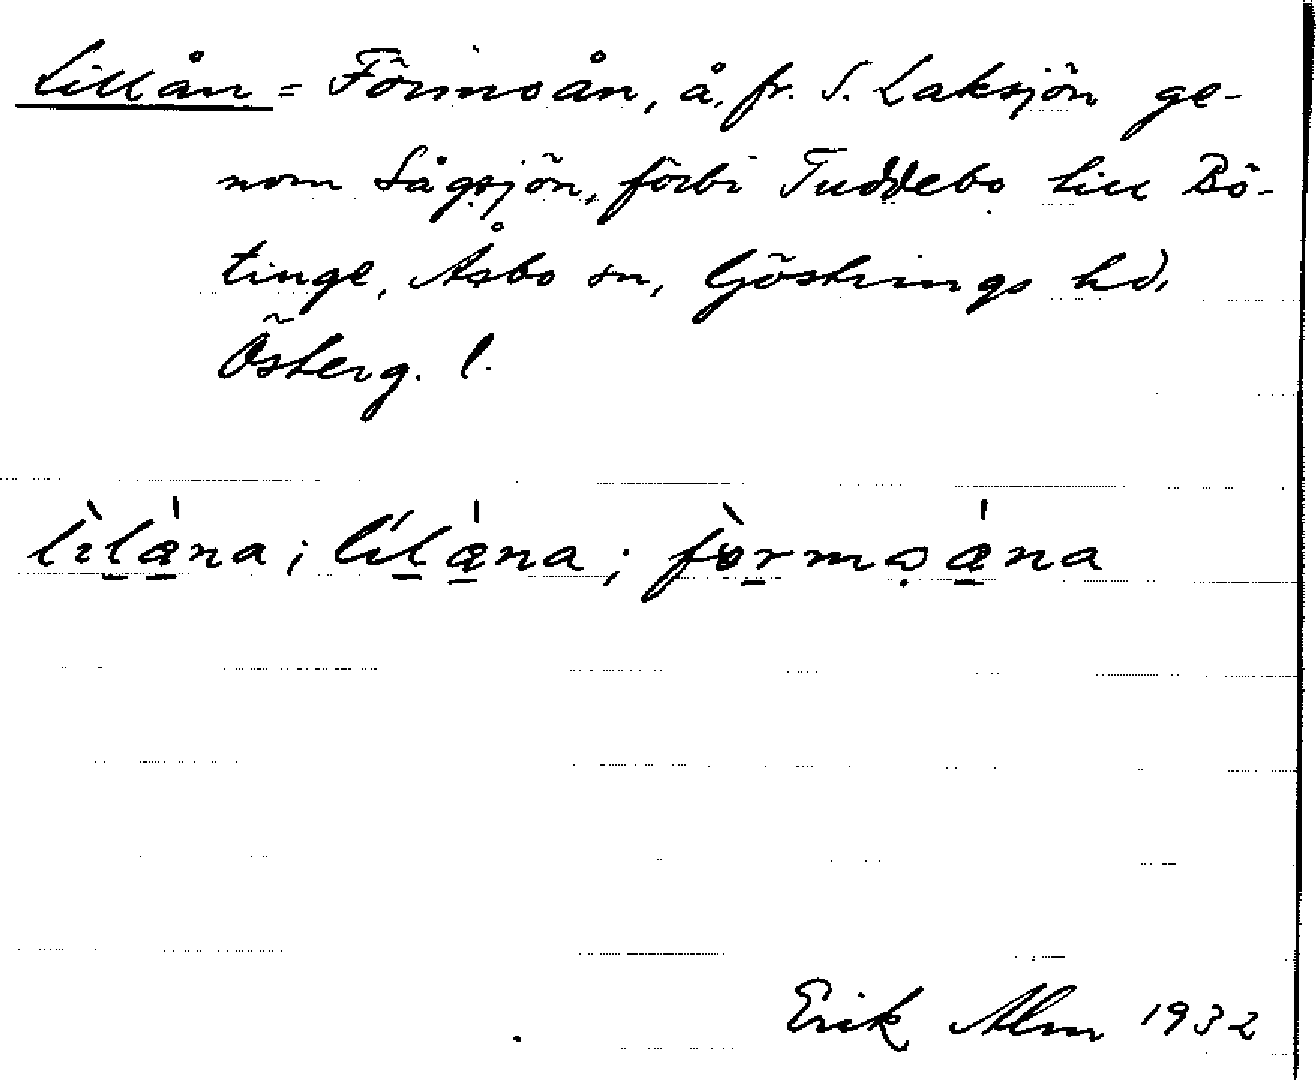 Lillån = Förmoån, å, fr. S. Laksjön ge-
nom Sågsjön, förbi Tuddebo till Bö-
tinge, Åsbo sn, Göstrings hd,
Österg. l.
Erik Alm 1932